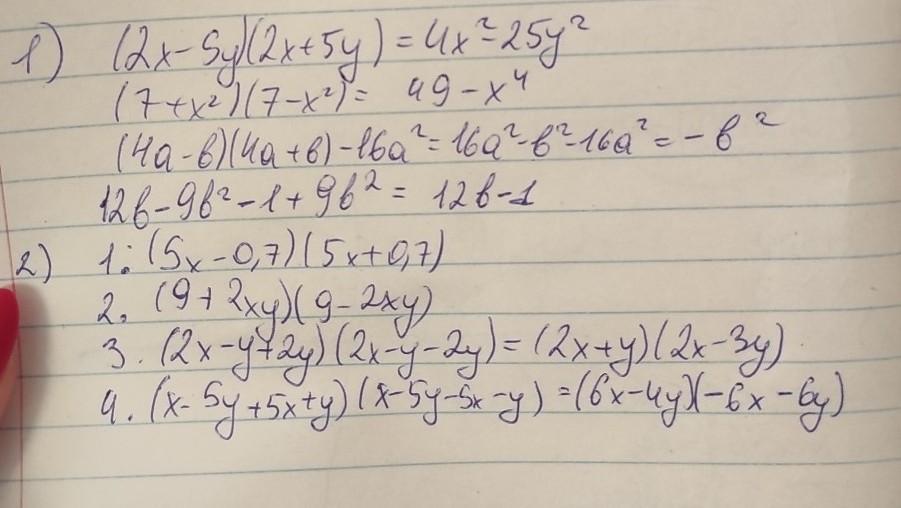 1) (2x-5y)(2x+5y)=4x²-25y²
(7+x²)(7-x²)= 49-x⁴
(4a-b)(4a+b)-16a²=16a²-b²-16a²=-b²
12b-9b²-1+9b²= 12b-1
2) 1. (5x-0,7)(5x+0,7)
2. (9+2xy)(9-2xy)
3. (2x-y+2y)(2x-y-2y)=(2x+y)(2x-3y)
4. (x-5y+5x+y)(x-5y-5x-y)=(6x-4y)(-6x-6y)